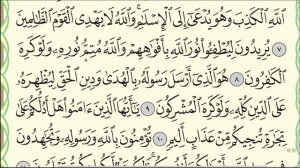 اللَّهِ الْكَذِبَ وَهُوَ يُدْعَىٰ إِلَى الْإِسْلَامِ ۚ وَاللَّهُ لَا يَهْدِي الْقَوْمَ الظَّالِمِينَ
٧ يُرِيدُونَ لِيُطْفِئُوا نُورَ اللَّهِ بِأَفْوَاهِهِمْ وَاللَّهُ مُتِمُّ نُورِهِ وَلَوْ كَرِهَ
الْكَافِرُونَ ٨ هُوَ الَّذِي أَرْسَلَ رَسُولَهُ بِالْهُدَىٰ وَدِينِ الْحَقِّ لِيُظْهِرَهُ
عَلَى الدِّينِ كُلِّهِ وَلَوْ كَرِهَ الْمُشْرِكُونَ ٩ يَا أَيُّهَا الَّذِينَ آمَنُوا هَلْ أَدُلُّكُمْ عَلَىٰ
تِجَارَةٍ تُنْجِيكُمْ مِنْ عَذَابٍ أَلِيمٍ ١٠ تُؤْمِنُونَ بِاللَّهِ وَرَسُولِهِ وَتُجَاهِدُونَ